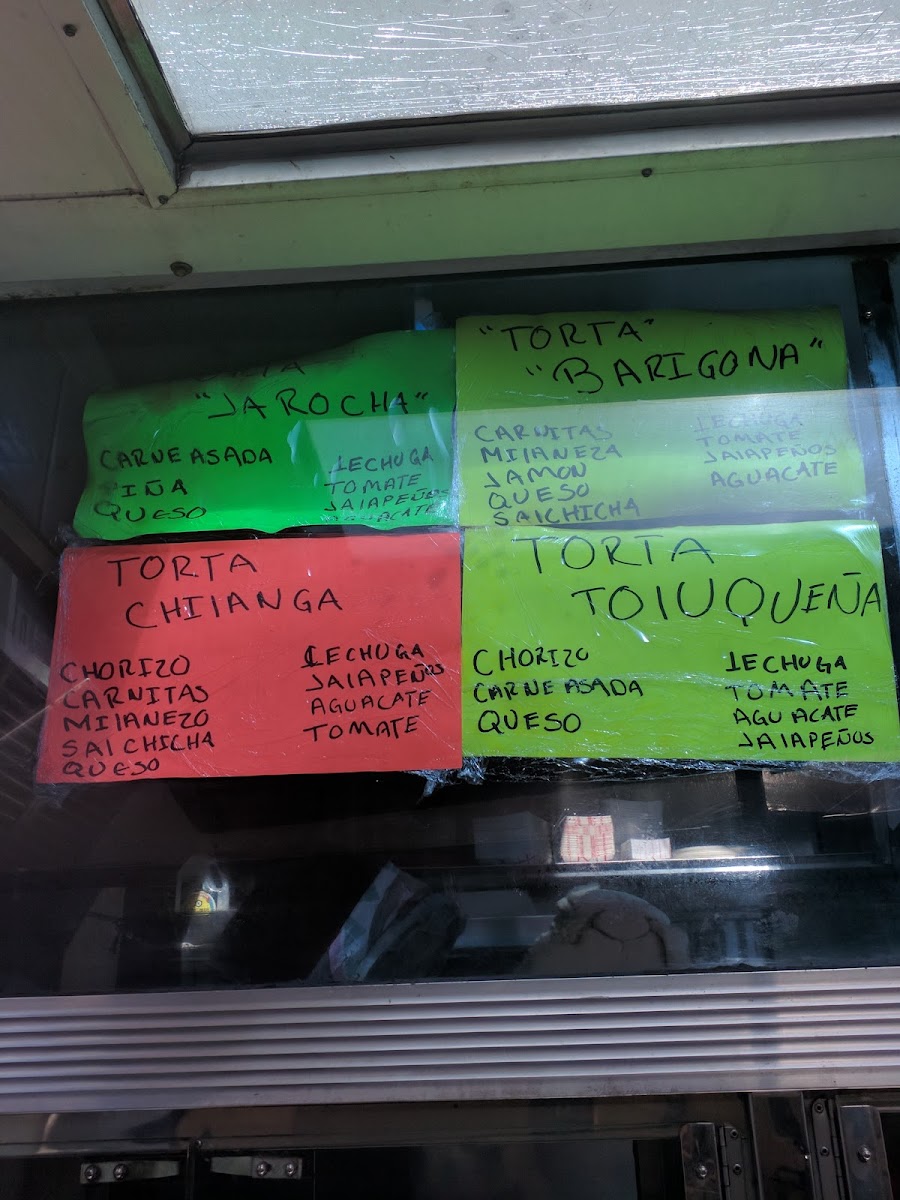 "JAROCHA"
CARNE ASADA
PIÑA
QUESO
LECHUGA
TOMATE
JALAPEÑOS
AGUACATE
"TORTA"
"BARIGONA"
CARNITAS
MILANEZA
JAMON
QUESO
SALCHICHA
LECHUGA
TOMATE
JALAPEÑOS
AGUACATE
TORTA
CHILANGA
CHORIZO
CARNITAS
MILANEZO
SALCHICHA
QUESO
LECHUGA
JALAPEÑOS
AGUACATE
TOMATE
TORTA
TOLUQUEÑA
CHORIZO
CARNE ASADA
QUESO
LECHUGA
TOMATE
AGUACATE
JALAPEÑOS